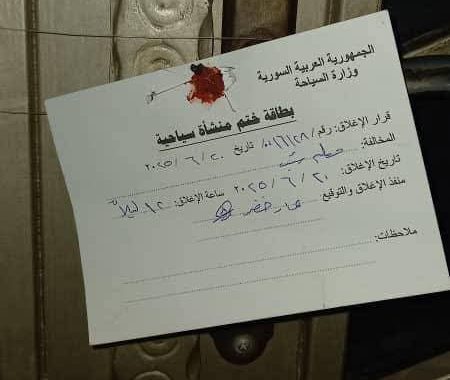 الجمهورية العربية السورية
وزارة السياحة
بطاقة ختم منشأة سياحية
قرار الإغلاق: رقم / ١٠٠٦/٢٨ / تاريخ ٢٠ / ٦ / ٢٠٢٥
المخالفة: مطعم
تاريخ الإغلاق: ٢٠ / ٦ / ٢٠٢٥ ساعة الإغلاق: ١٢ ليلاً
منفذ الإغلاق والتوقيع خضر
ملاحظات: